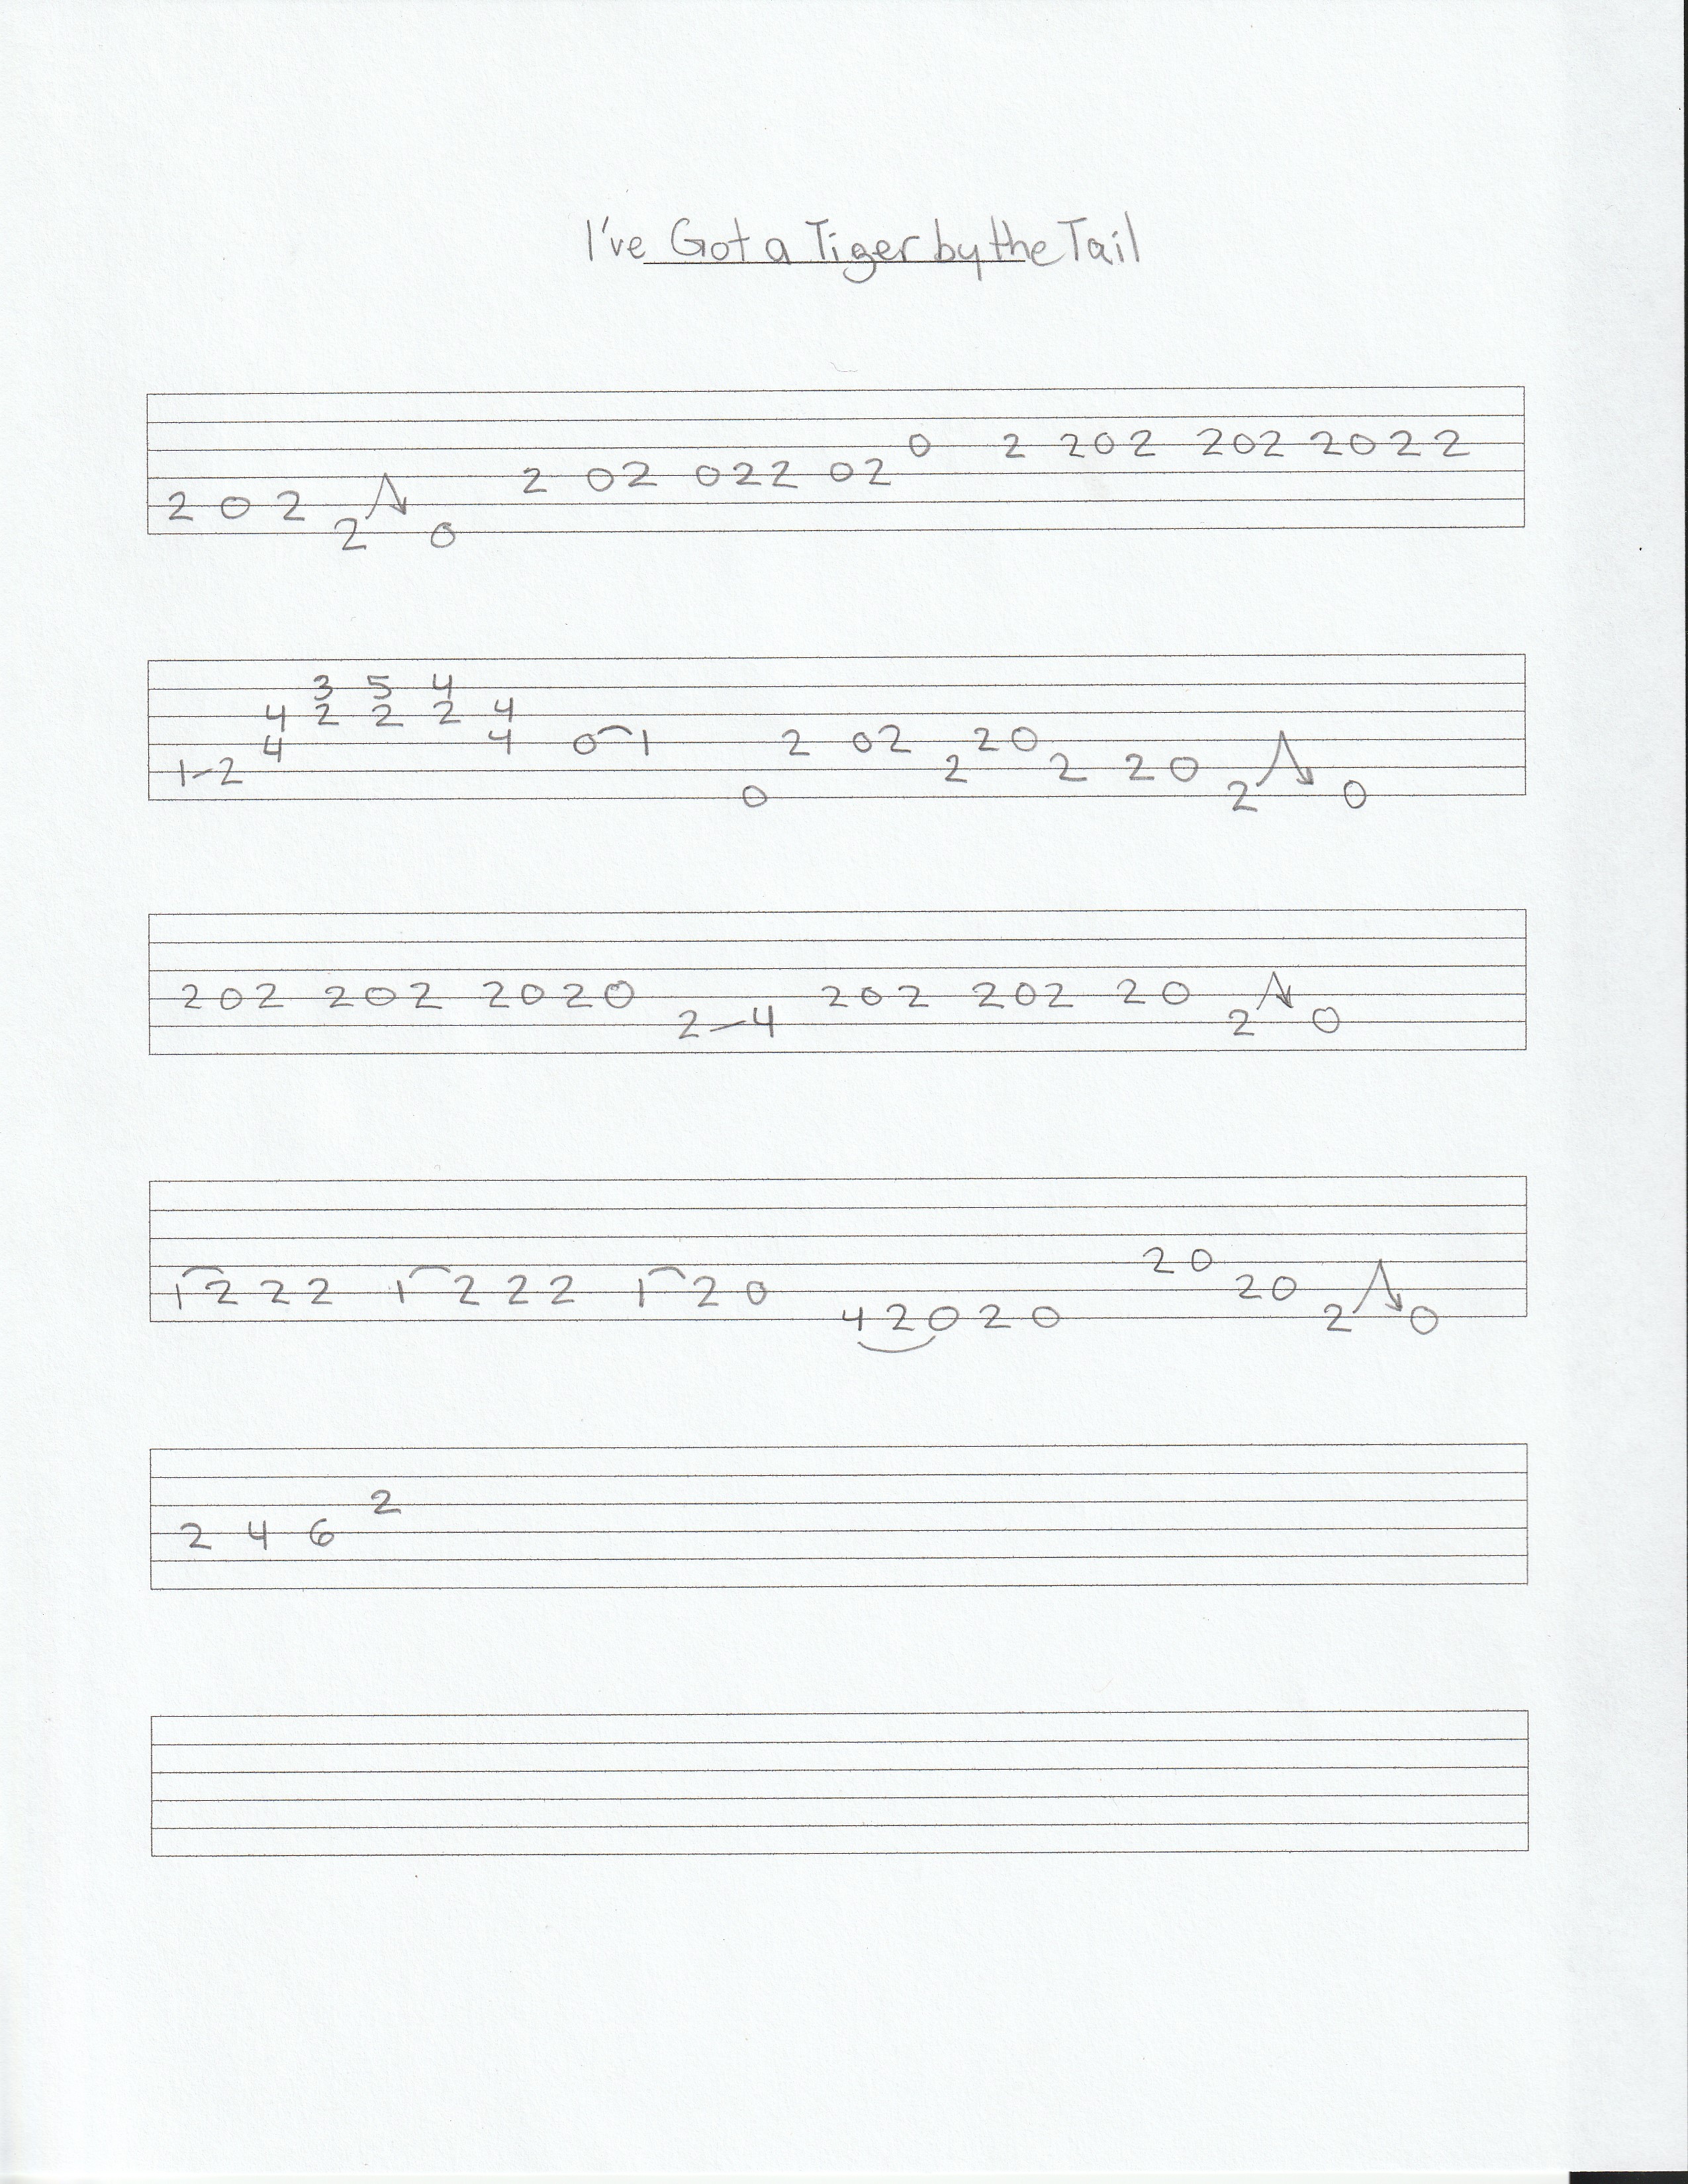 I've Got a Tiger by the Tail
2 0 2 2 0 2 02 022 02 0 2 202 202 2022
3 5 4
4 2 2 2 4
4 4 0 1 2 02 20
1-2 2 2 20
0 2 0
202 202 2020 202 202 20
2-4 2 0
20
1 2 2 2 1 2 2 2 1 2 0 20
4 2 0 2 0 2 0
2
2 4 6